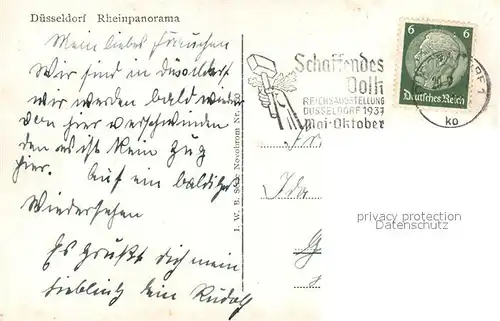 Düsseldorf Rheinpanorama
Mein liebes Frauchen
Wir sind in Düsseldorf
wir werden bald wieder
von hier verschwinden
den es ist kein Zug
hier. Auf ein baldiges
Wiedersehen
Es grüßt dich mein
Liebling dein Rudolf
Schaffendes
Volk
REICHSAUSSTELLUNG
DÜSSELDORF 1937
Mai-Oktober
6 6
Deutsches Reich
ko
Ida
privacy protection
Datenschutz